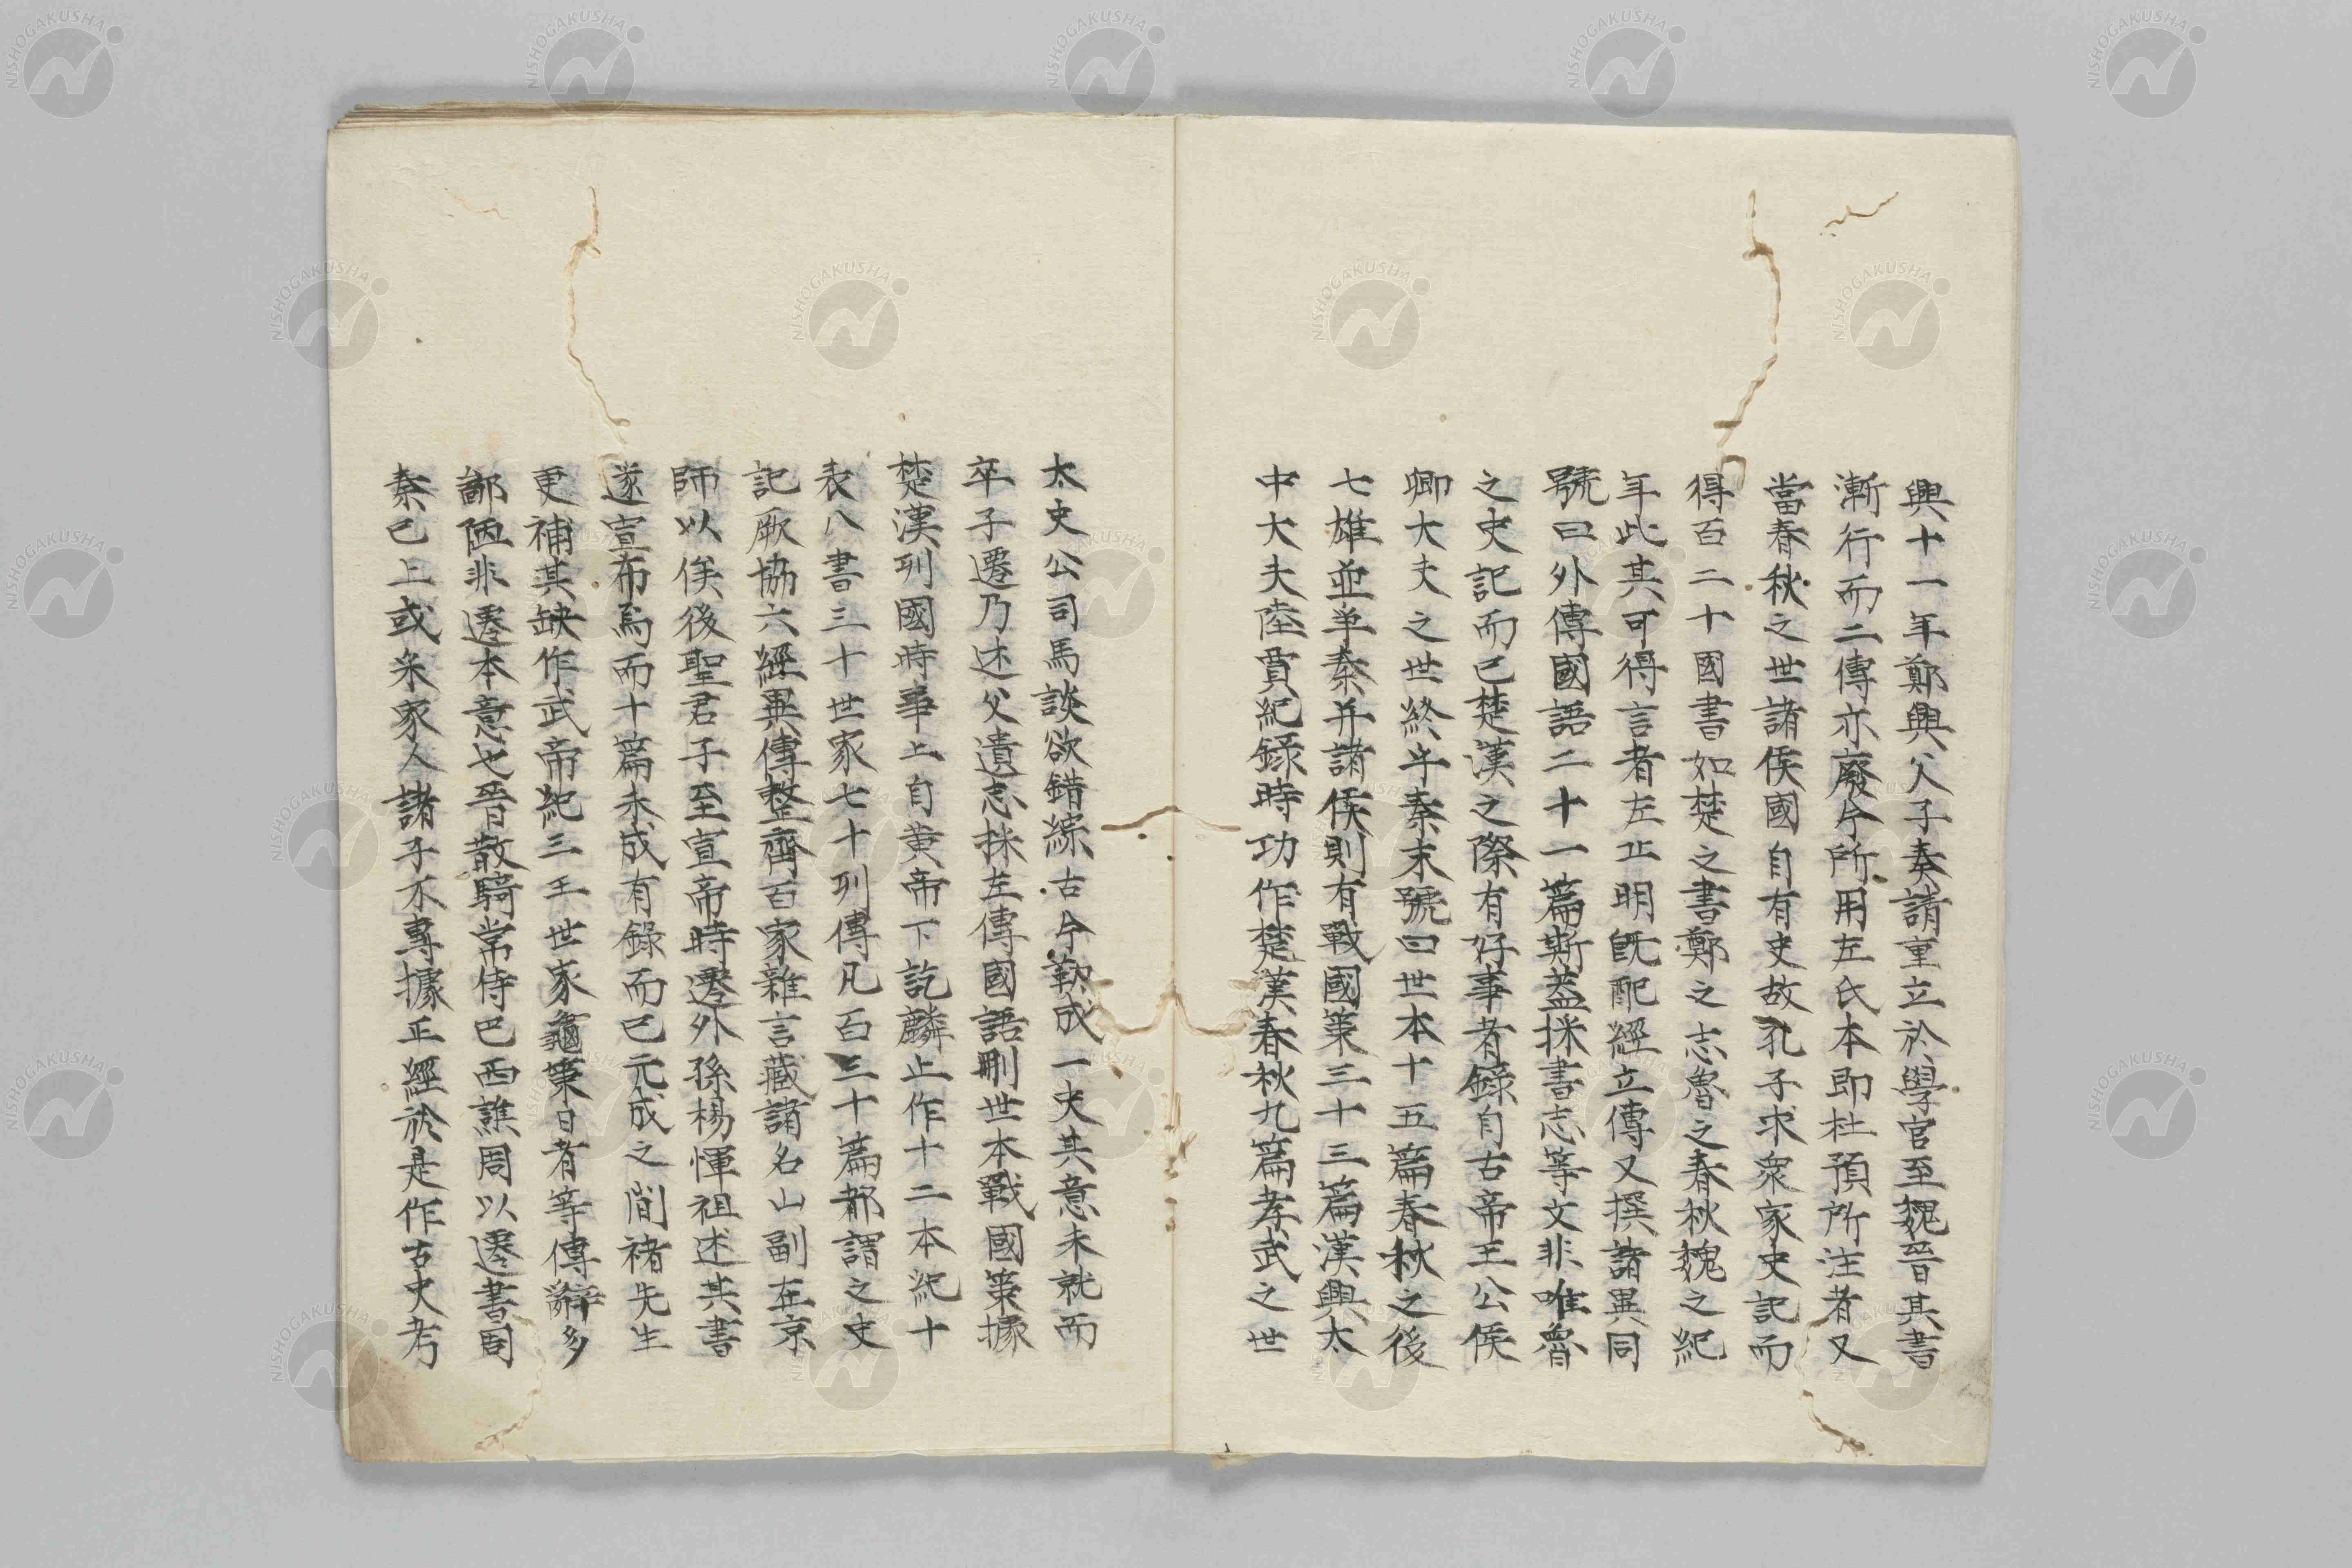 興十一年鄭興父子奏請重立於學官至魏晉其書
漸行而二傳亦廢今所用左氏本即杜預所注者又
當春秋之世諸侯國自有史故孔子求衆家史記而
得百二十國書如楚之書鄭之志魯之春秋魏之紀
年此其可得言者左丘明既配經立傳又撰諸異同
號曰外傳國語二十一篇斯蓋採書志等文非唯魯
之史記而已楚漢之際有好事者錄自古帝王公侯
卿大夫之世終乎秦末號曰世本十五篇春秋之後
七雄並爭秦并諸侯則有戰國策三十三篇漢興太
中大夫陸賈紀錄時功作楚漢春秋九篇孝武之世
太史公司馬談欲錯綜古今勒成一史其意未就而
卒子遷乃述父遺志採左傳國語刪世本戰國策據
楚漢列國時事上自黄帝下訖麟止作十二本紀十
表八書三十世家七十列傳凡百三十篇都謂之史
記厥協六經異傳整齊百家雜言藏諸名山副在京
師以俟後聖君子至宣帝時遷外孫楊惲祖述其書
遂宣布焉而十篇未成有錄而已元成之間褚先生
更補其缺作武帝紀三王世家龜策日者等傳辭多
鄙陋非遷本意也晉散騎常侍巴西譙周以遷書周
秦已上或采家人諸子不專據正經於是作古史考
NISHOGAKUSHA